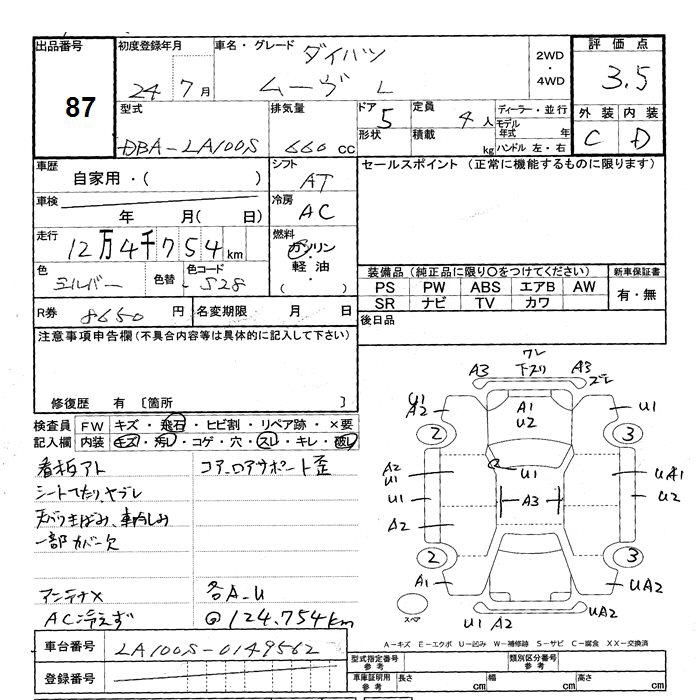 出品番号 初度登録年月 車名・グレード ダイハツ 2WD・4WD 評価点
87 24 7月 ムーヴ L 3.5
型式 排気量 ドア 5 定員 4人 ディーラー・並行 外装 内装
形状 積載 kg モデル年式 年 ハンドル 左・右
DBA-LA100S 660 cc C D
車歴 シフト セールスポイント (正常に機能するものに限ります)
自家用・( ) AT
車検 冷房
年 月( 日) AC
走行 燃料
12万4千754km ガソリン・
色 色替 色コード 軽油・
シルバー S28 ( )
装備品 (純正品に限り○をつけてください) 新車保証書
PS PW ABS エアB AW 有・無
SR ナビ TV カワ
R券 8650 円 名変期限 月 日 後日品
注意事項申告欄(不具合内容等は具体的に記入して下さい)
修復歴 有 〔箇所 〕
検査員 FW キズ・飛石・ヒビ割・リペア跡・×要
記入欄 内装 キズ・汚レ・コゲ・穴・スレ・キレ・破レ
看板アト コアロアサポート歪
シートへたり、ヤブレ
天バリきばみ、車内しみ
一部カバー欠
アンテナ× 各A-U
AC冷えず @124.754km
ワレ
A3 下スリ A3 ズレ
U1 A2 A1 U2 U1
2 3
A2 U1 U1 UA1
U1 A3 U2
A2
2 3
A1 UA2
スペア U1 A2 UA2
A-キズ E-エクボ U-凹み W-補修跡 S-サビ C-腐食 XX-交換済
車台番号 LA100S-0149562
登録番号
型式指定番号 参考 類別区分番号 参考
車庫証明用 参考 長さ cm 幅 cm 高さ cm